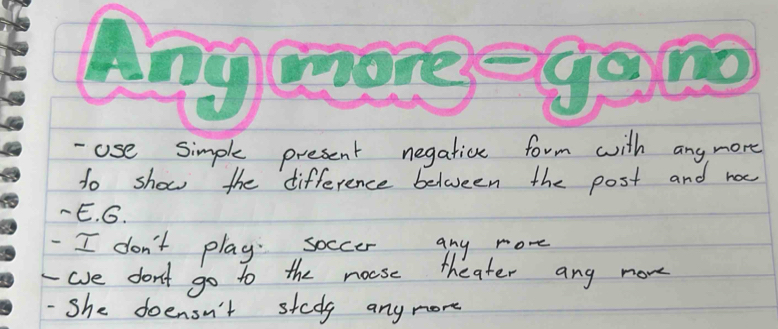 Any more - ga no
- use simple present negative form with any more
to show the difference between the past and now
- E.G.
- I don't play soccer any more
- we dont go to the theater any more
- She doensn't stcdy any more